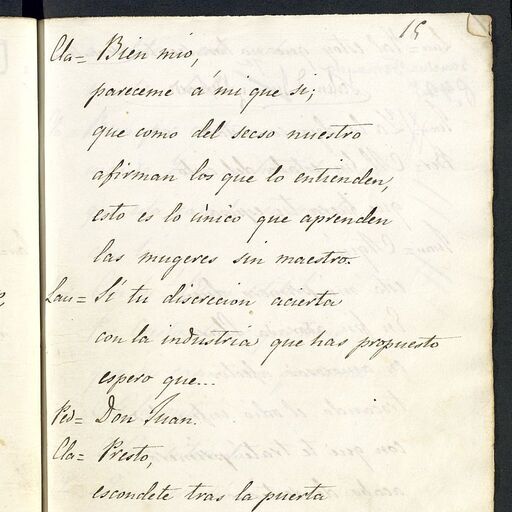 15
Cla= Bien mio,
pareceme á mi que si;
que como del secso nuestro
afirman los que lo entienden,
esto es lo único que aprenden
las mugeres sin maestro.
Lau= Si tu discrecion acierta
con la industria que has propuesto
espero que...
Ped= Don Juan.
Cla= Presto,
escondete tras la puerta